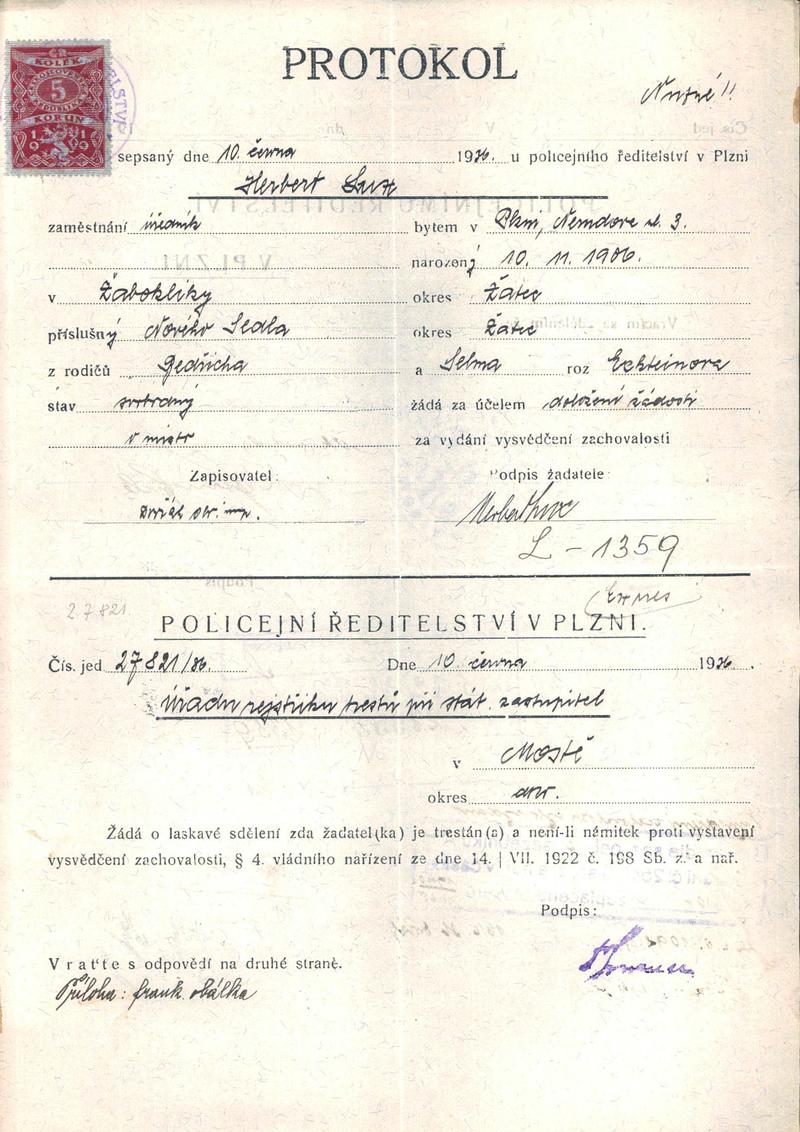 ČR
KOLEK
5
KORUN
1919
PROTOKOL
Nutné!!
sepsaný dne 10. června 1936. u policejního ředitelství v Plzni
Herbert Lux
zaměstnání úředník
bytem v Plzni, 3.
narozený 10. 11. 1906.
v Žabokliky
okres Žatec
příslušný Nového Sedla
okres Žatec
z rodičů Bedřicha
a Selma roz
stav svobodný
žádá za účelem doložení žádosti
v místě
za vydání vysvědčení zachovalosti
Zapisovatel:
Podpis žadatele:
Herbert Lux
L - 1359
27821
Expres
POLICEJNÍ ŘEDITELSTVÍ V PLZNI.
Čís. jed 27821/36. Dne 10. června 1936.
Úřadu rejstříku trestů při stát. zastupitel
v Mostě
okres
Žádá o laskavé sdělení zda žadatel(ka) je trestán(a) a není-li námitek proti vystavení
vysvědčení zachovalosti, § 4. vládního nařízení ze dne 14. | VII. 1922 č. 198 Sb. z. a nař.
Podpis:
Vraťte s odpovědí na druhé straně.
Příloha: frank. obálka